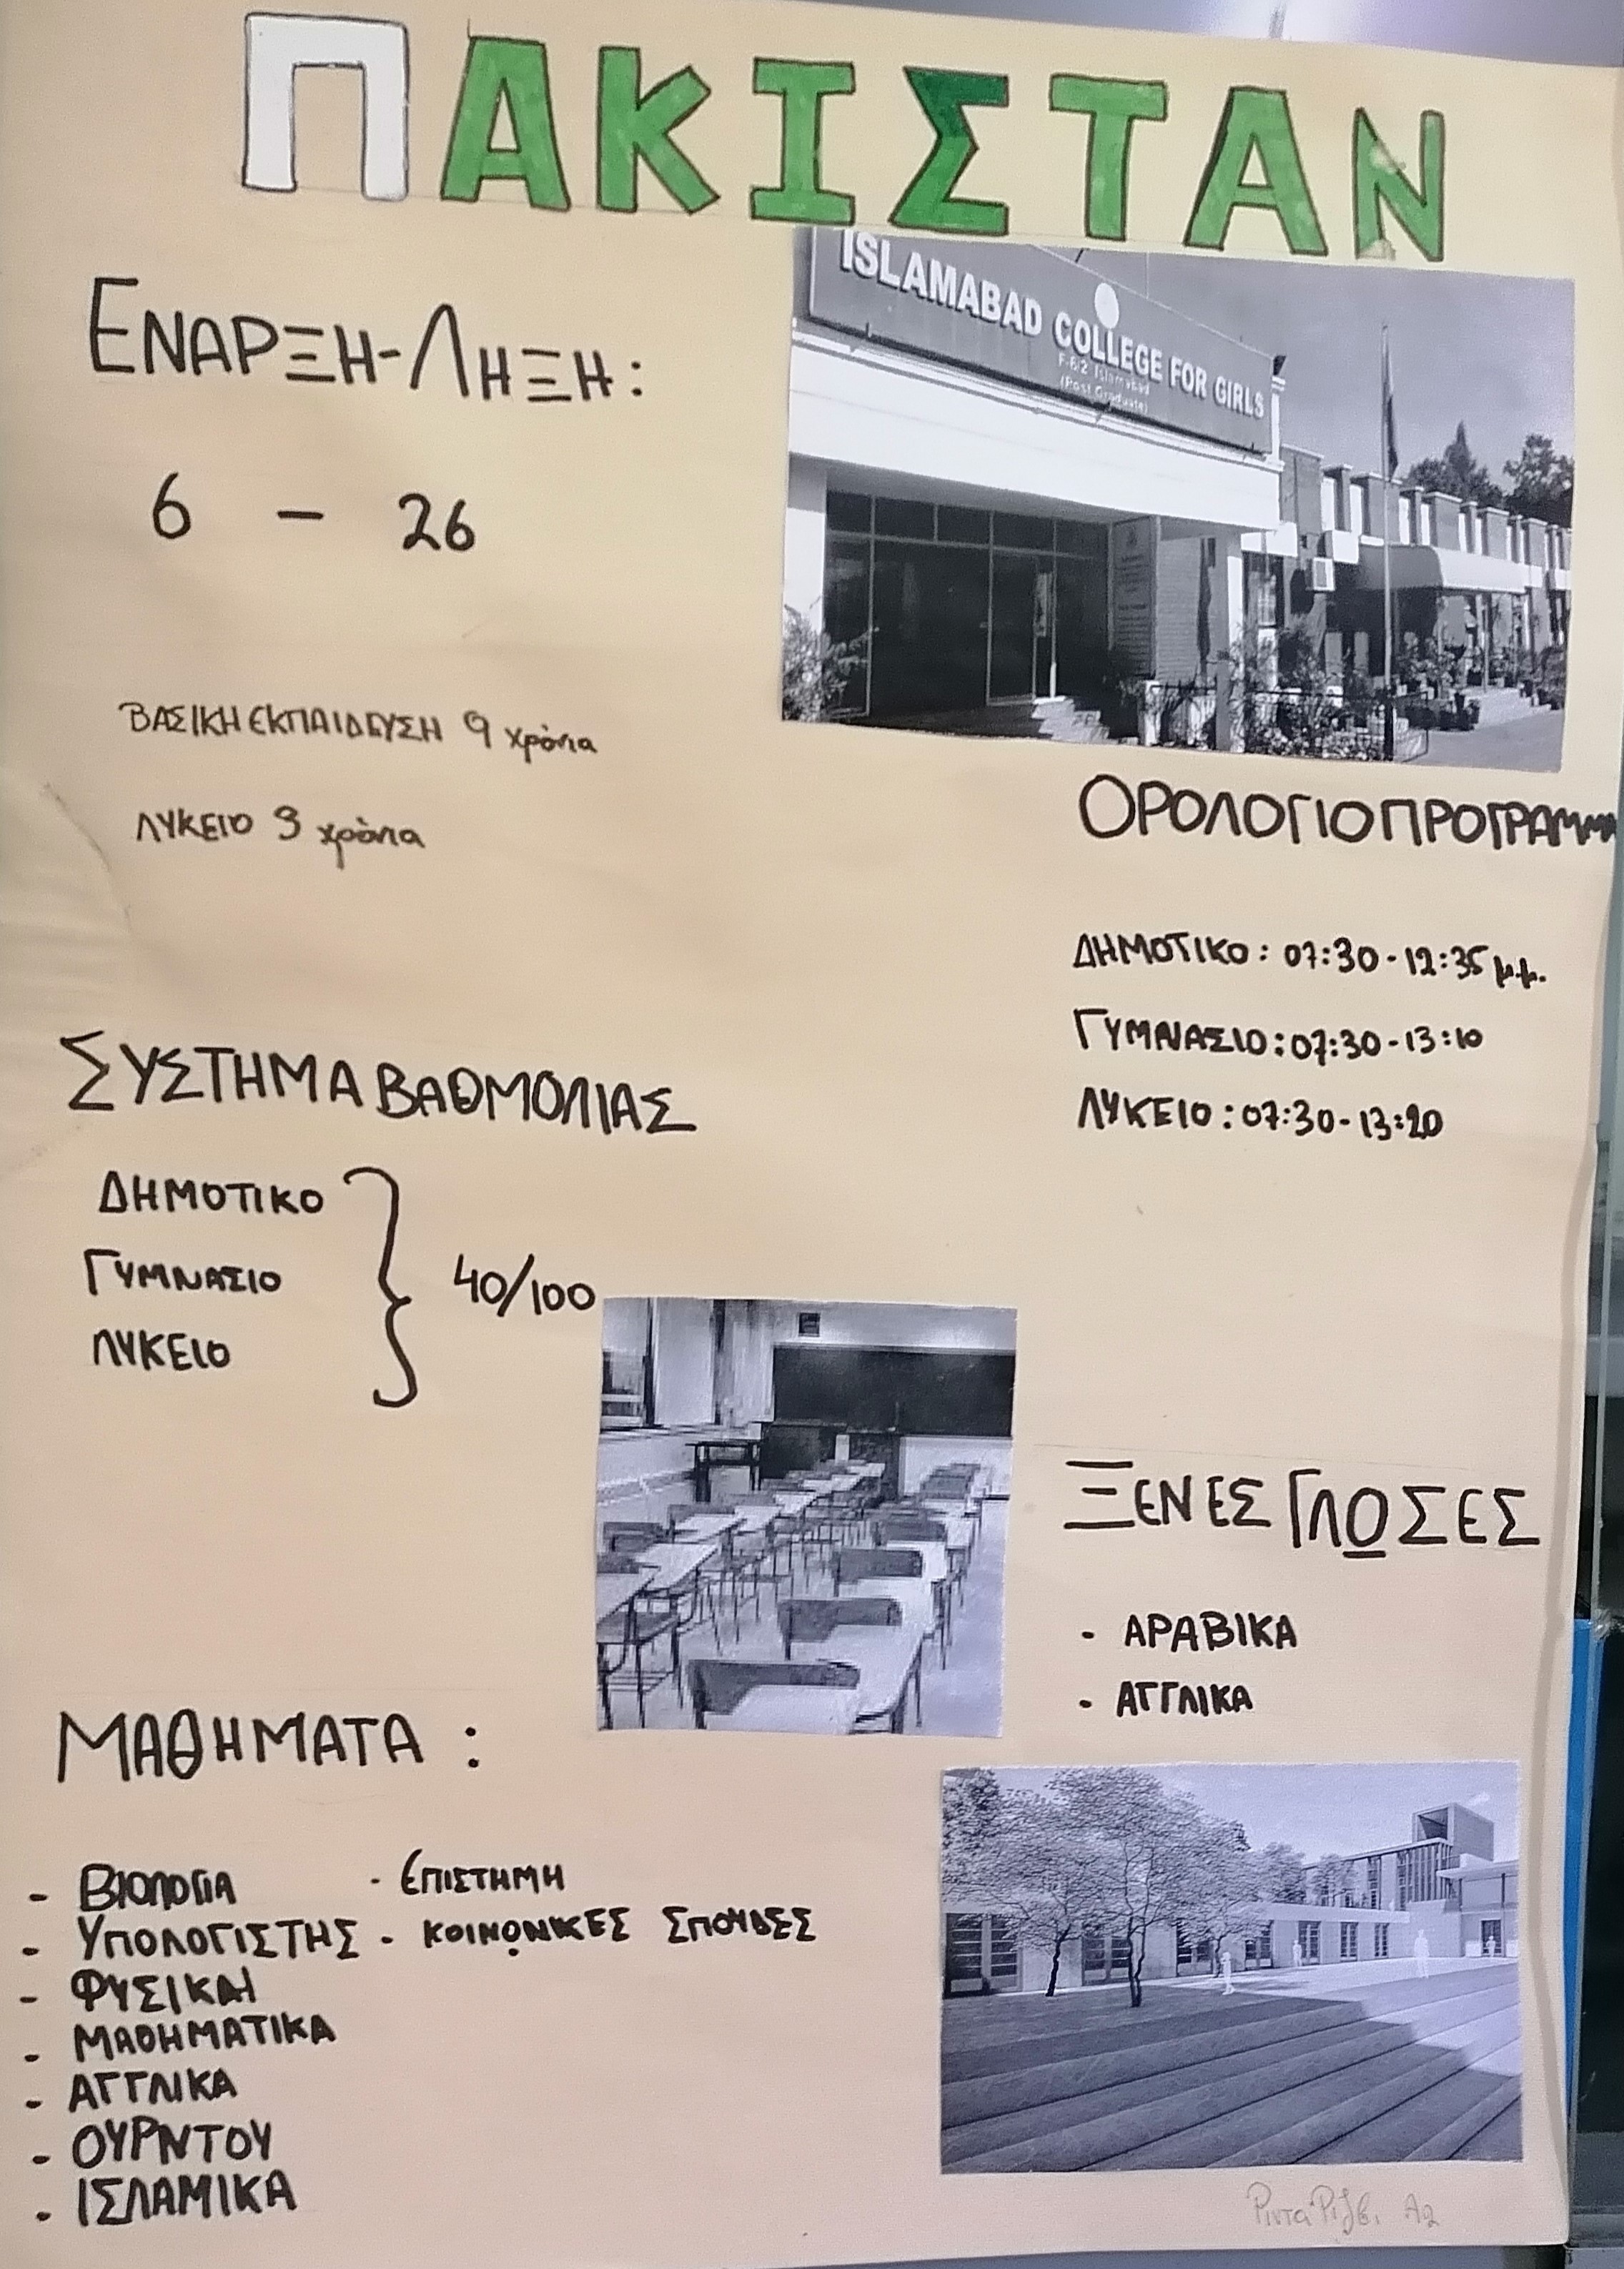 ΠΑΚΙΣΤΑΝ
ISLAMABAD COLLEGE FOR GIRLS
F-6/2 Islamabad
(Post Graduate)
ΕΝΑΡΞΗ-ΛΗΞΗ:
6 - 26
ΒΑΣΙΚΗ ΕΚΠΑΙΔΕΥΣΗ 9 χρόνια
ΛΥΚΕΙΟ 3 χρόνια
ΟΡΟΛΟΓΙΟ ΠΡΟΓΡΑΜΜΑ
ΔΗΜΟΤΙΚΟ: 07:30-12:35 μ.μ.
ΓΥΜΝΑΣΙΟ: 07:30-13:10
ΛΥΚΕΙΟ: 07:30-13:20
ΣΥΣΤΗΜΑ ΒΑΘΜΟΛΙΑΣ
ΔΗΜΟΤΙΚΟ
ΓΥΜΝΑΣΙΟ
ΛΥΚΕΙΟ
40/100
ΞΕΝΕΣ ΓΛΟΣΕΣ
- ΑΡΑΒΙΚΑ
- ΑΓΓΛΙΚΑ
ΜΑΘΗΜΑΤΑ :
- ΒΙΟΛΟΓΙΑ
- ΥΠΟΛΟΓΙΣΤΗΣ
- ΦΥΣΙΚΑΙ
- ΜΑΘΗΜΑΤΙΚΑ
- ΑΓΓΛΙΚΑ
- ΟΥΡΝΤΟΥ
- ΙΣΛΑΜΙΚΑ
- ΕΠΙΣΤΗΜΗ
- ΚΟΙΝΟΝΙΚΕΣ ΣΠΟΥΔΕΣ
Ριντα Ριζβι Α2